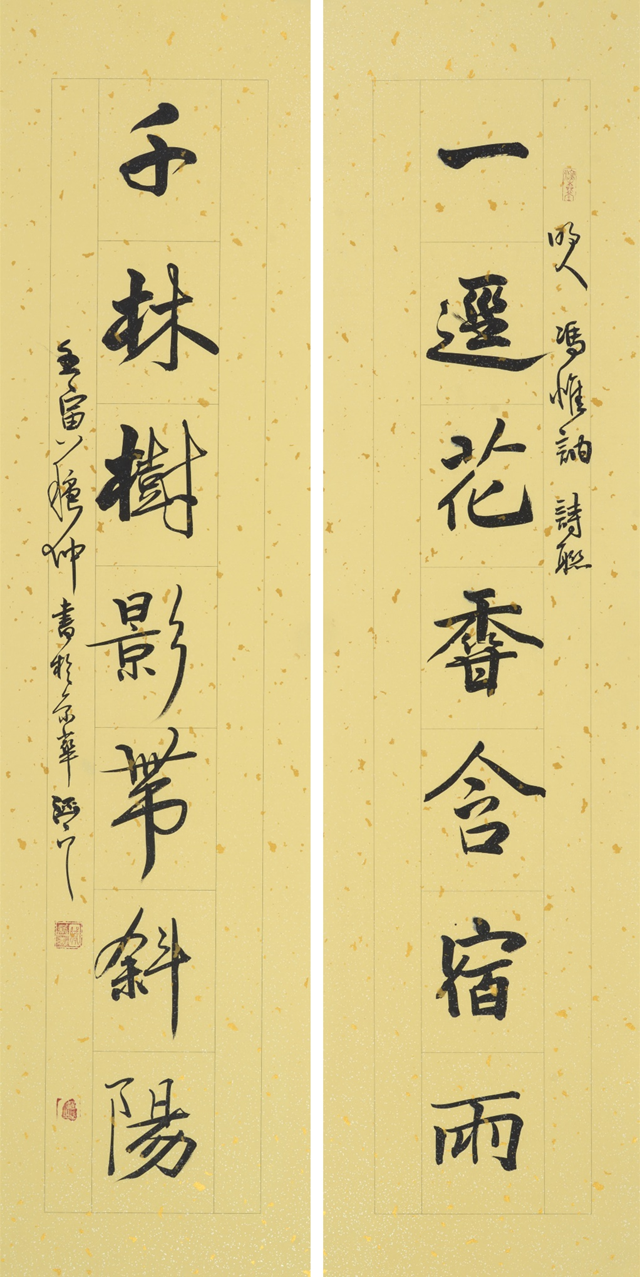 明人 馮惟訥 詩聯
一逕花香含宿雨
千林樹影帶斜陽
壬寅 穐仲 書於京華